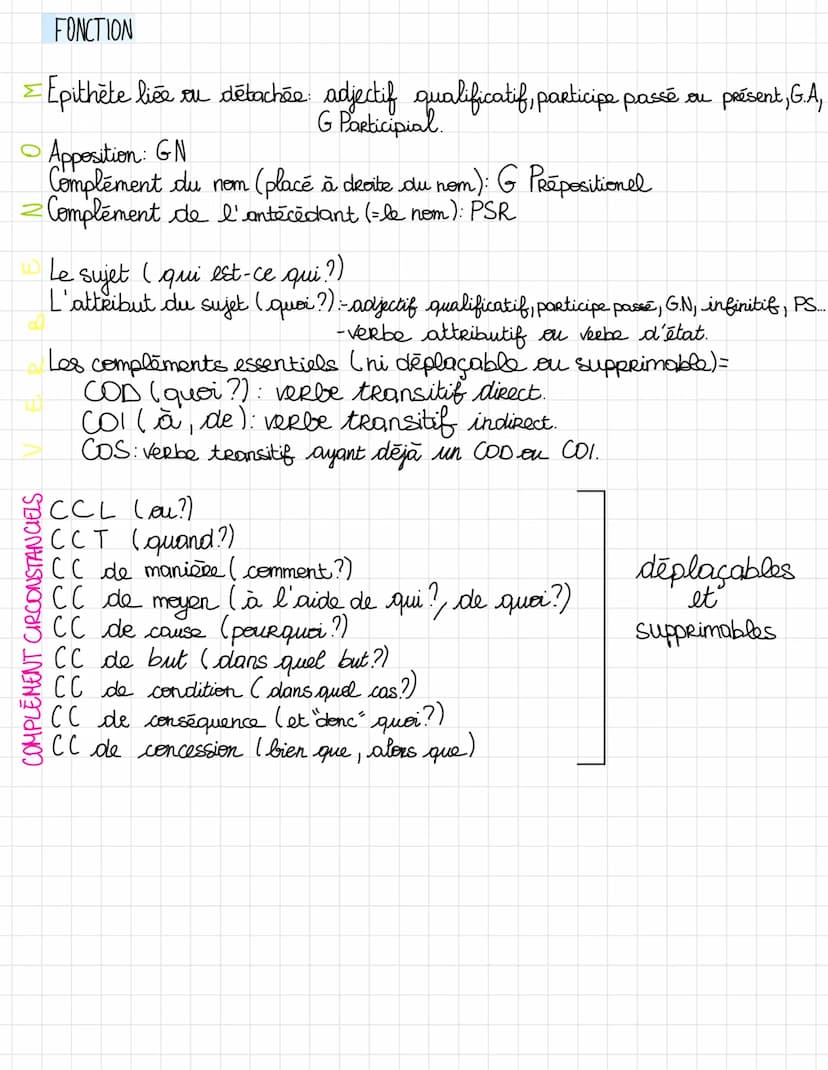 FONCTION
Epithète liée ou détachée: adjectif qualificatif, participe passé ou présent, G.A,
G Participial.
Apposition: GN
Complément du nom (placé à droite du nom): G Prépositionel
Complément de l'antécédant (=le nom): PSR
NOM
Le sujet (qui est-ce qui?)
L'attribut du sujet (quoi?):-adjectif qualificatif, participe passé, GN, infinitif, PS...
-verbe attributif ou verbe d'état.
Les compléments essentiels (ni déplaçable ou supprimable)=
COD (quoi?): verbe transitif direct.
COI (à, de): verbe transitif indirect.
COS: verbe transitif ayant déjà un COD ou COI.
VERBE
CCL (ou?)
CCT (quand?)
CC de manière (comment?)
CC de moyen (à l'aide de qui?, de quoi?)
CC de cause (pourquoi?)
CC de but (dans quel but?)
CC de condition (dans quel cas?)
CC de conséquence (et "donc" quoi?)
CC de concession (bien que, alors que)
COMPLÉMENT CIRCONSTANCIELS
déplaçables
et
supprimables